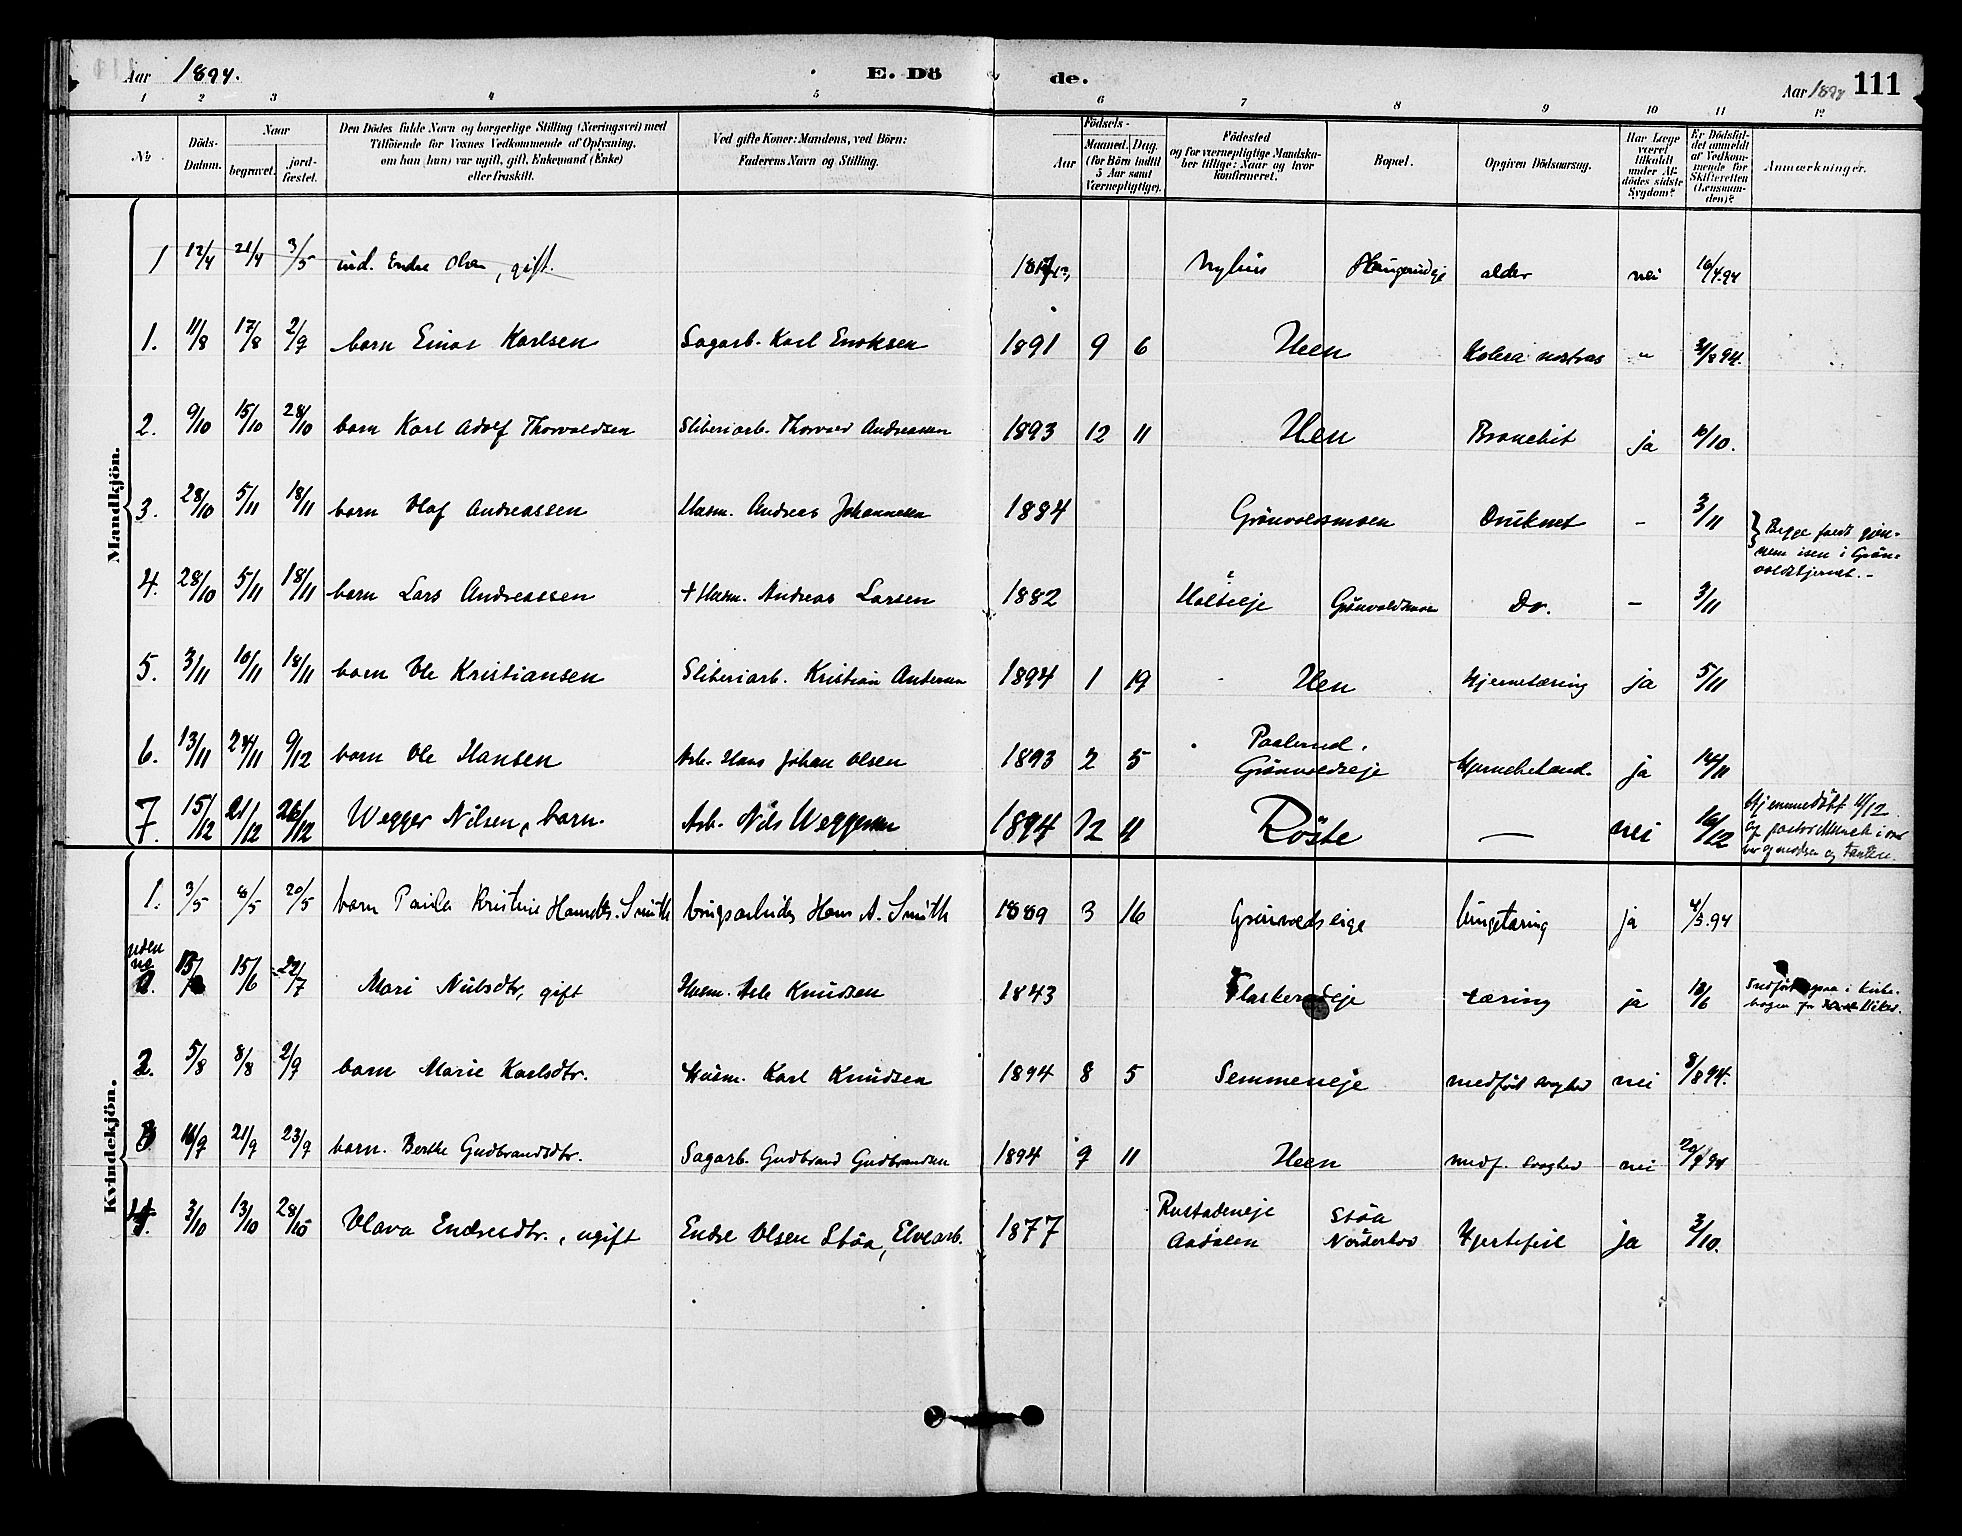 Aar 1894. E. Dö de. Aar 1894 111
1 2 3 4 5 6 7 8 9 10 11 12
№ Döds-Datum. Naar begravet. jord-fæstet. Den Dödes fulde Navn og borgerlige Stilling (Næringsvei) med Tilföiende for Voxnes Vedkommende af Oplysning, om han (hun) var ugift, gift, Enkemand (Enke) eller fraskilt. Ved gifte Koner: Mandens, ved Börn: Faderens Navn og Stilling. Födsels- Aar Maaned. Dag. (for Börn indtil 5 Aar samt Værnepligtige). Födested og for værnepligtige Mandskaber tillige: Naar og hvor konfirmeret. Bopæl. Opgiven Dödsaarsag. Har Læge været tilkaldt under Afdödes sidste Sygdom? Er Dödsfaldet anmeldt af Vedkommende for Skifteretten (Lensmanden)? Anmærkninger.
Mandkjön.
1 12/4 21/4 3/5 ind. Endre Olsen, gift. Nyhus alder nei 16/4.94
1. 11/8 17/8 2/9 barn Einar Karlsen Sagarb. Karl Enoksen 1891 9 6 Heen Kolera nostras " 21/8 94.
2. 9/10 15/10 28/10 barn Karl Adolf Thorvaldsen Sliberiarb. Thorvald Andreassen 1893 12 11 Hen Bronchit ja 10/10.
3. 28/10 5/11 18/11 barn Olaf Andreassen Husm. Andreas Johannesen 1884 Grönvoldsmoen Druknet - 3/11 } Begge faldt gjen-
nem isen i Grön-
voldtjernet. -
4. 28/10 5/11 18/11 barn Lars Andreassen + Husm. Andreas Larsen 1882 Holteeje Grönvoldsmoen Do. - 3/11
5. 3/11 10/11 18/11 barn Ole Kristiansen Sliberiarb. Kristian Andersen 1894 1 19 Hen Hjernetæring ja 5/11
6. 13/11 24/11 9/12 barn Ole Hansen Arb. Hans Johan Olsen 1893 2 5 Paalerud.
Grönvoldseje Hjernebetænd. ja 14/11
7. 15/12 21/12 26/12 Wegger Nilsen, barn. Arb. Nils Weggersen 1894 12 11 Röste — nei 16/12 Hjemmedöbt 11/12
Kvindekjön.
1. 3/5 8/5 20/5 barn Paula Kristine Hansdtr. Smith Brugsarbeider Hans A. Smith 1889 3 16 Grönvoldseige lungetæring ja 4/5.94
uden
no. 15/6 22/7 Mari Nilsdtr, gift Husm. Asle Knudsen 1843 Flaskerudeje tæring ja 18/6 Indfört ogsaa i Kirke-
bogen for Viker.
2. 5/8 8/8 2/9 barn Marie Karlsdtr. Husm. Karl Knudsen 1894 8 5 Semmeneje medfödt svaghed nei 8/8 94.
3 16/9 21/9 23/9 barn. Berthe Gudbrandsdtr. Sagarb. Gudbrand Gudbrandsen 1894 9 11 Heen medf. svaghed nei 20/9 94
4. 3/10 13/10 28/10 Olava Endresdtr., ugift Endre Olsen Stöa, Elvearb. 1877 Rustadeneje
Aadalen Stöa
Norderhov Hjertefeil ja 3/10.